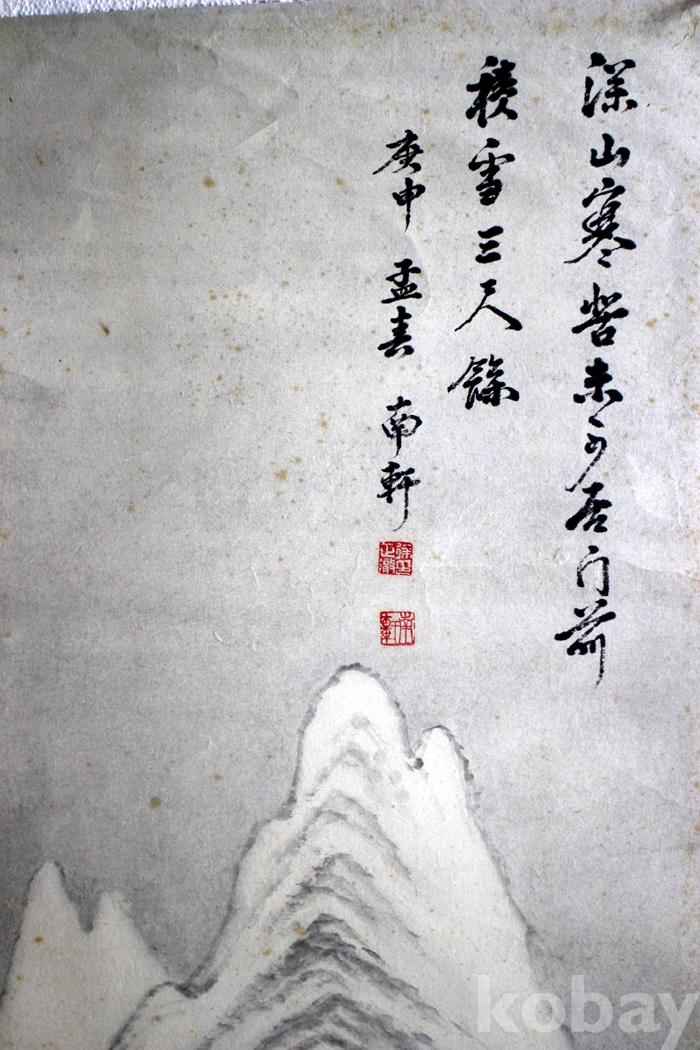 深山寒苦未可居門前
積雪三尺餘
庚申 孟春 南軒
kobay